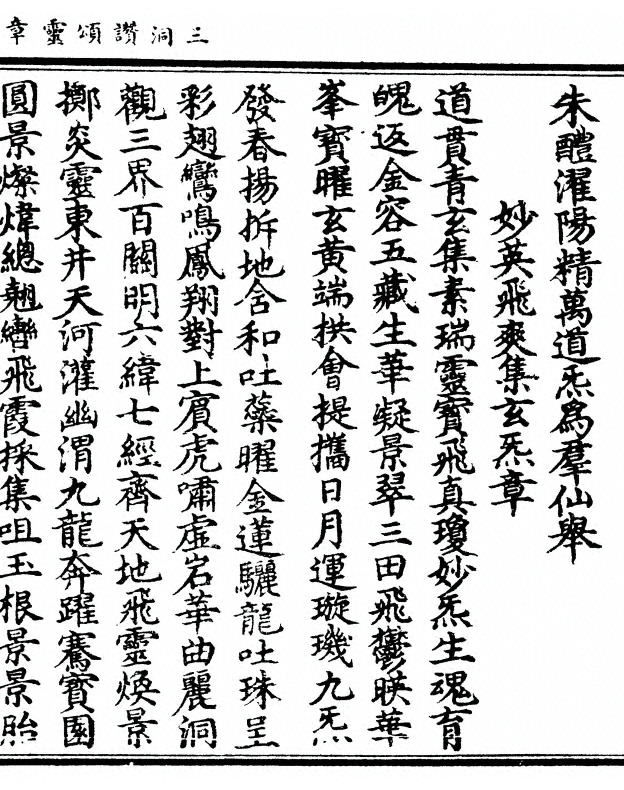 三洞讚頌靈章
朱醴濯陽精萬道炁為羣仙舉
妙英飛爽集玄炁章
道貫青玄集素瑞靈寶飛真瓊妙炁生魂育
魄返金容五藏生華凝景翠三田飛鬱暎華
峯寶曜玄黃端拱會提攜日月運璇璣九炁
發春揚拆地舍和吐藥曜金蓮驪龍吐珠呈
彩翅鸞鳴鳳翔對上賔虎嘯虛岩華曲麗洞
觀三界百關明六緯七經齊天地飛靈煥景
擲炎靈東井天河灌幽渭九龍奔躍騫寶園
圓景燦煒總翹轡飛霞採集咀玉根景景胎